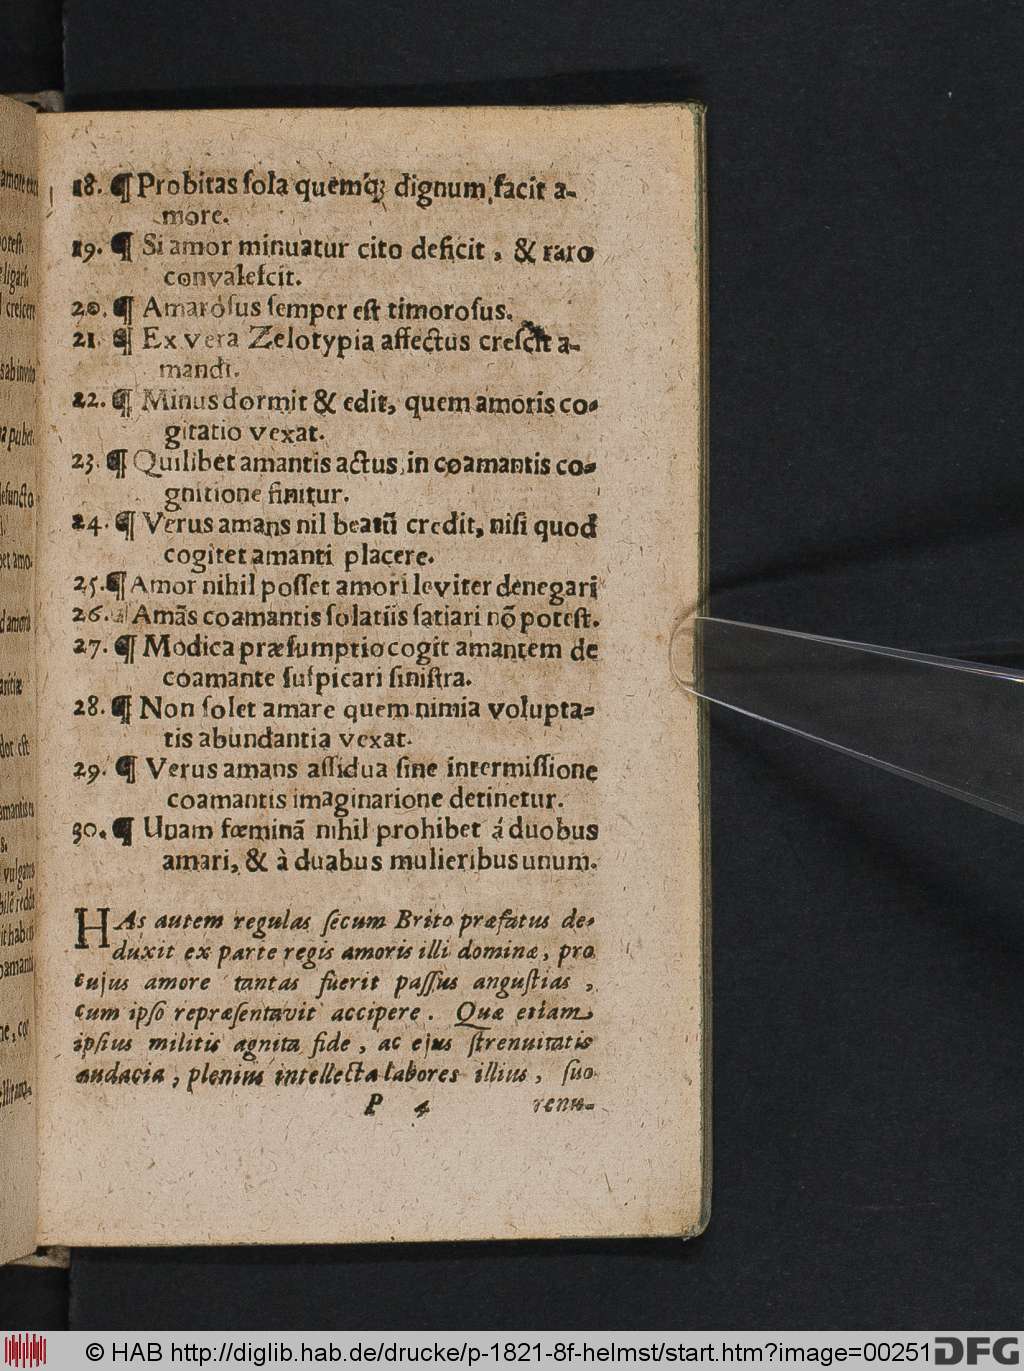 18. ¶ Probitas ſola quemq; dignum facit a-
more.
19. ¶ Si amor minuatur cito deficit, & raro
convaleſcit.
20. ¶ Amaroſus ſemper eſt timoroſus.
21. ¶ Ex vera Zelotypia affectus creſcit a-
mandi.
22. ¶ Minus dormit & edit, quem amoris co-
gitatio vexat.
23. ¶ Quilibet amantis actus, in coamantis co-
gnitione finitur.
24. ¶ Verus amans nil beatũ credit, niſi quod
cogitet amanti placere.
25. ¶ Amor nihil poſſet amori leviter denegari
26. ¶ Amãs coamantis ſolatiis ſatiari nõ poteſt.
27. ¶ Modica præſumptio cogit amantem de
coamante ſuſpicari ſiniſtra.
28. ¶ Non ſolet amare quem nimia volupta-
tis abundantia vexat.
29. ¶ Verus amans aſſidua ſine intermiſſione
coamantis imaginarione detinetur.
30. ¶ Unam fœminã nihil prohibet á duobus
amari, & à duabus mulieribus unum.
HAs autem regulas ſecum Brito præfatus de-
duxit ex parte regis amoris illi dominæ, pro
cujus amore tantas fuerit paſſus anguſtias,
cum ipſo repræſentavit accipere. Quæ etiam
ipſius militis agnita fide, ac ejus ſtrenuitatis
audacia, plenius intellecta labores illius, ſuo
P 4 renu-
© HAB http://diglib.hab.de/drucke/p-1821-8f-helmst/start.htm?image=00251
DFG